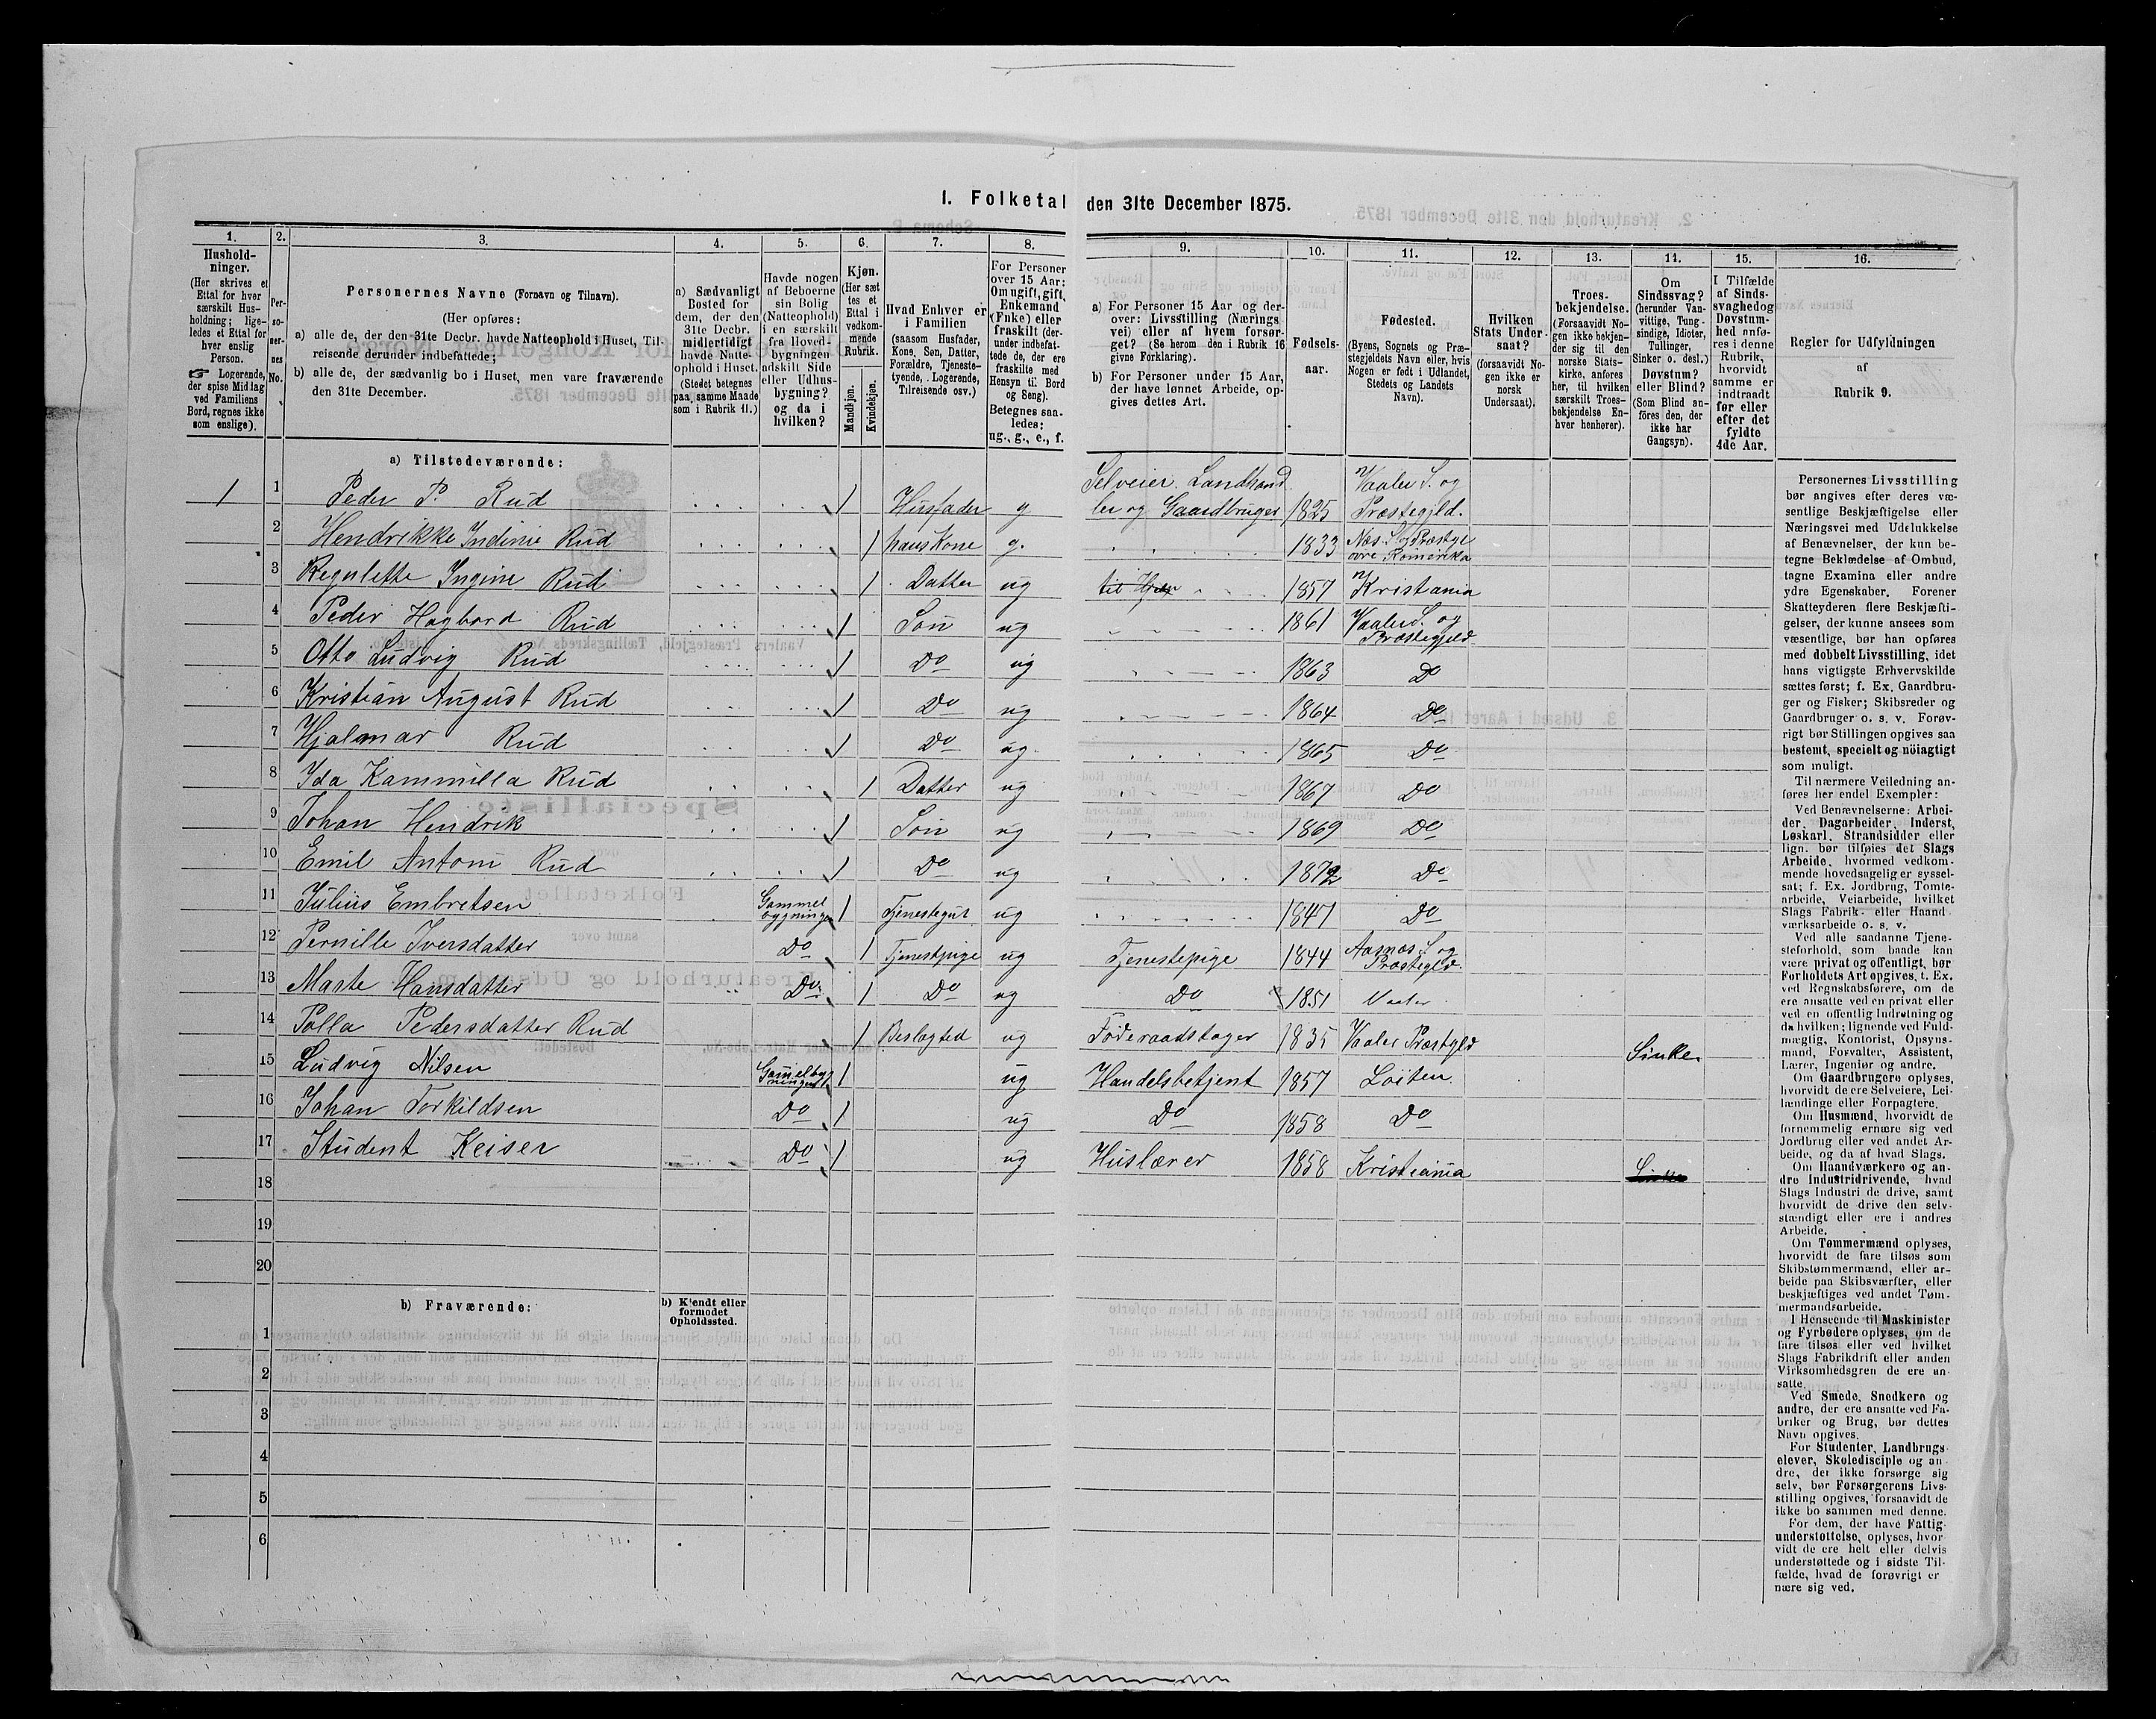 I. Folketal den 31te December 1875.
1.
2.
3.
4.
5.
6.
7.
8.
9.
10.
11.
12.
13.
14.
15.
16.
Hushold-
ninger.
(Her skrives et
Ettal for hver
særskilt Hus-
holdning; lige-
ledes et Ettal for
hver enslig
Person.
☞ Logerende,
der spise Middag
ved Familiens
Bord, regnes ikke
som enslige).
Per-
so-
ner-
nes
No.
Personernes Navne (Fornavn og Tilnavn).
(Her opføres:
a) alle de, der den 31te Decbr. havde Natteophold i Huset, Til-
reisende derunder indbefattede;
b) alle de, der sædvanlig bo i Huset, men vare fraværende
den 31te December.
a) Sædvanligt
Bosted for
dem, der den
31te Decbr.
midlertidigt
havde Natte-
ophold i Huset.
(Stedet betegnes
paa samme Maade
som i Rubrik 11.)
Havde nogen
af Beboerne
sin Bolig
(Natteophold)
i en særskilt
fra Hoved-
bygningen
adskilt Side
eller Udhus-
bygning?
og da i
hvilken?
Kjøn.
(Her sæt
tes et
Ettal i
vedkom-
mende
Rubrik.
Mandkjøn.
Kvindekjøn.
Hvad Enhver er
i Familien
(saasom Husfader,
Kone, Søn, Datter,
Forældre, Tjeneste-
tyende, Logerende,
Tilreisende osv.)
For Personer
over 15 Aar:
Om ugift, gift,
Enkemand
(Enke) eller
fraskilt (der-
under indbefat-
tede de, der ere
fraskilte med
Hensyn til Bord
og Seng).
Betegnes saa-
ledes:
ug., g., e., f.
a) For Personer 15 Aar og der-
over: Livsstilling (Nærings
vei) eller af hvem forsør-
get? (Se herom den i Rubrik 16
givne Forklaring).
b) For Personer under 15 Aar,
der have lønnet Arbeide, op-
gives dettes Art.
Fødsels-
aar.
Fødested.
(Byens, Sognets og Præ-
stegjeldets Navn eller, hvis
Nogen er født i Udlandet,
Stedets og Landets
Navn).
Hvilken
Stats Under-
saat?
(forsaavidt No-
gen ikke er
norsk
Undersaat).
Troes-
bekjendelse.
(Forsaavidt No-
gen ikke bekjen-
der sig til den
norske Stats-
kirke, anføres
her, til hvilken
særskilt Troes-
bekjendelse En-
hver henhører).
Om
Sindssvag?
(herunder Van-
vittige, Tung-
sindige, Idioter,
Tullinger,
Sinker o. desl.)
Døvstum?
eller Blind?
(Som Blind an-
føres den, der
ikke har
Gangsyn).
I Tilfælde
af Sinds-
svaghed og
Døvstum-
hed anfø-
res i denne
Rubrik,
hvorvidt
samme er
indtraadt
før eller
efter det
fyldte
4de Aar.
Regler for Udfyldningen
af
Rubrik 9.
a) Tilstedeværende:
1 1 Peder P. Rud 1 Husfader g Selveier Landhand
ler og Gaardbruger 1825 Vaaler S. og
Præstegjld.
2 Hendrikke Indinie Rud 1 hans Kone g. 1833 Næs S og Præstgl
øvre Romerike
3 Regulette Ingine Rud 1 Datter ug 1857 Kristania
4 Peder Hagbord Rud 1 Søn ug 1861 Vaaler S. og
Præstegjeld
5 Otto Ludvig Rud 1 Do ug 1863 Do
6 Kristian August Rud 1 Do ug 1864 Do
7 Hjalmar Rud 1 Do ug. 1865 Do
8 Ida Kammilla Rud 1 Datter ug 1867 Do
9 Johan Hendrik 1 Søn ug 1869 Do
10 Emil Anton Rud 1 Do ug 1872 Do
11 Julius Embretsen Gammel
bygningen 1 Tjenestegut ug 1847 Do
12 Pernille Iversdatter Do 1 Tjenestpige ug Tjenestepige 1844 Aasnæs S og
Præstegld.
13 Marte Hansdatter Do 1 Do ug Do 1851 Vaaler
14 Polla Pedersdatter Rud 1 Beslægted ug Føderaadstager 1835 Vaaler Præstgld Sinke
15 Ludvig Nilsen Gamelbyg
ningen 1 ug Handelsbetjent 1857 Løiten
16 Johan Torkildsen Do 1 ug Do 1858 Do
17 Student Keiser Do 1 ug Huslærer 1858 Kristiania
18
19
20
b) Fraværende:
b) Kjendt eller
formodet
Opholdssted.
1
2
3
4
5
6
Personernes Livsstilling
bør angives efter deres væ-
sentlige Beskjæftigelse eller
Næringsvei med Udelukkelse
af Benævnelser, der kun be-
tegne Beklædelse af Ombud,
tagne Examina eller andre
ydre Egenskaber. Forener
Skatteyderen flere Beskjæfti-
gelser, der kunne ansees som
væsentlige, bør han opføres
med dobbelt Livsstilling, idet
hans vigtigste Erhvervskilde
sættes først; f. Ex. Gaardbru-
ger og Fisker; Skibsreder og
Gaardbruger o. s. v. Forøv-
rigt bør Stillingen opgives saa
bestemt, specielt og nöiagtigt
som muligt.
Til nærmere Veiledning an-
føres her endel Exempler:
Ved Benævnelserne: Arbei-
der, Dagarbeider, Inderst,
Løskarl, Strandsidder eller
lign. bør tilføies det Slags
Arbeide, hvormed vedkom-
mende hovedsagelig er syssel-
sat; f. Ex. Jordbrug, Tomte-
arbeide, Veiarbeide, hvilket
Slags Fabrik- eller Haand
værksarbeide o. s. v.
Ved alle saadanne Tjene-
steforhold, som baade kan
være privat og offentligt, bør
Forholdets Art opgives, t. Ex.
ved Regnskabsførere, om de
ere ansatte ved en privat eller
ved en offentlig Indretning og
da hvilken; lignende ved Fuld-
mægtig, Kontorist, Opsyns-
mand, Forvalter, Assistent,
Lærer, Ingeniør og andre.
Om Gaardbrugere oplyses,
hvorvidt de ere Selveiere, Lei-
lændinge eller Forpagtere.
Om Husmænd, hvorvidt de
fornemmelig ernære sig ved
Jordbrug eller ved andet Ar-
beide, og da af hvad Slags.
Om Haandværkere og an-
dre Industridrivende, hvad
Slags Industri de drive, samt
hvorvidt de drive den selv-
stændigt eller ere i andres
Arbeide.
Om Tømmermænd oplyses,
hvorvidt de fare tilsøs som
Skibstømmermænd, eller ar-
beide paa Skibsværfter, eller
beskjæftiges ved andet Tøm-
mermandsarbeide.
I Henseende til Maskinister
og Fyrbødere oplyses, om de
fare tilsøs eller ved hvilket
Slags Fabrikdrift eller anden
Virksomhedsgren de ere an-
satte.
Ved Smede, Snedkere og
andre, der ere ansatte ved Fa-
briker og Brug, bør dettes
Navn opgives.
For Studenter, Landbrugs-
elever, Skoledisciple og an-
dre, der ikke forsørge sig
selv, bør Forsørgerens Livs-
stilling opgives, forsaavidt de
ikke bo sammen med denne.
For dem, der have Fattig-
understøttelse, oplyses, hvor-
vidt de ere helt eller delvis
understøttede og i sidste Til-
fælde, hvad de forøvrigt er
nære sig ved.